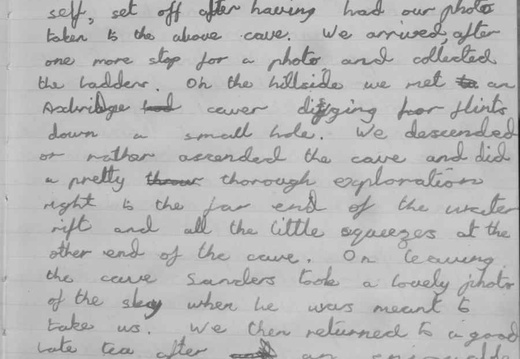 self, set off after having had our photo
taken to the above cave. We arrived after
one more stop for a photo and collected
the ladders. On the hillside we met to an
Axbridge had caver digging for flints
down a small hole. We descended
or rather ascended the cave and did
a pretty throur thorough exploration
right to the far end of the water
rift and all the little squeezes at the
other end of the cave. On leaving
the cave Sanders took a lovely photo
of the sky when he was meant to
take us. We then returned to a good
late tea after an